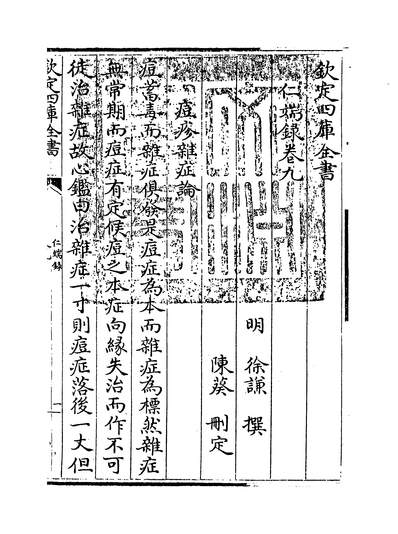 欽定四庫全書
仁端錄卷九
明 徐謙 撰
陳葵 刪定
痘疹雜症論
痘蓄毒而雜症俱發是痘症為本而雜症為標然雜症
無常期而痘症有定候痘之本症向緣失治而作不可
徒治雜症故心鑑曰治雜症一寸則痘症落後一丈但
欽定四庫全書
仁端錄
一